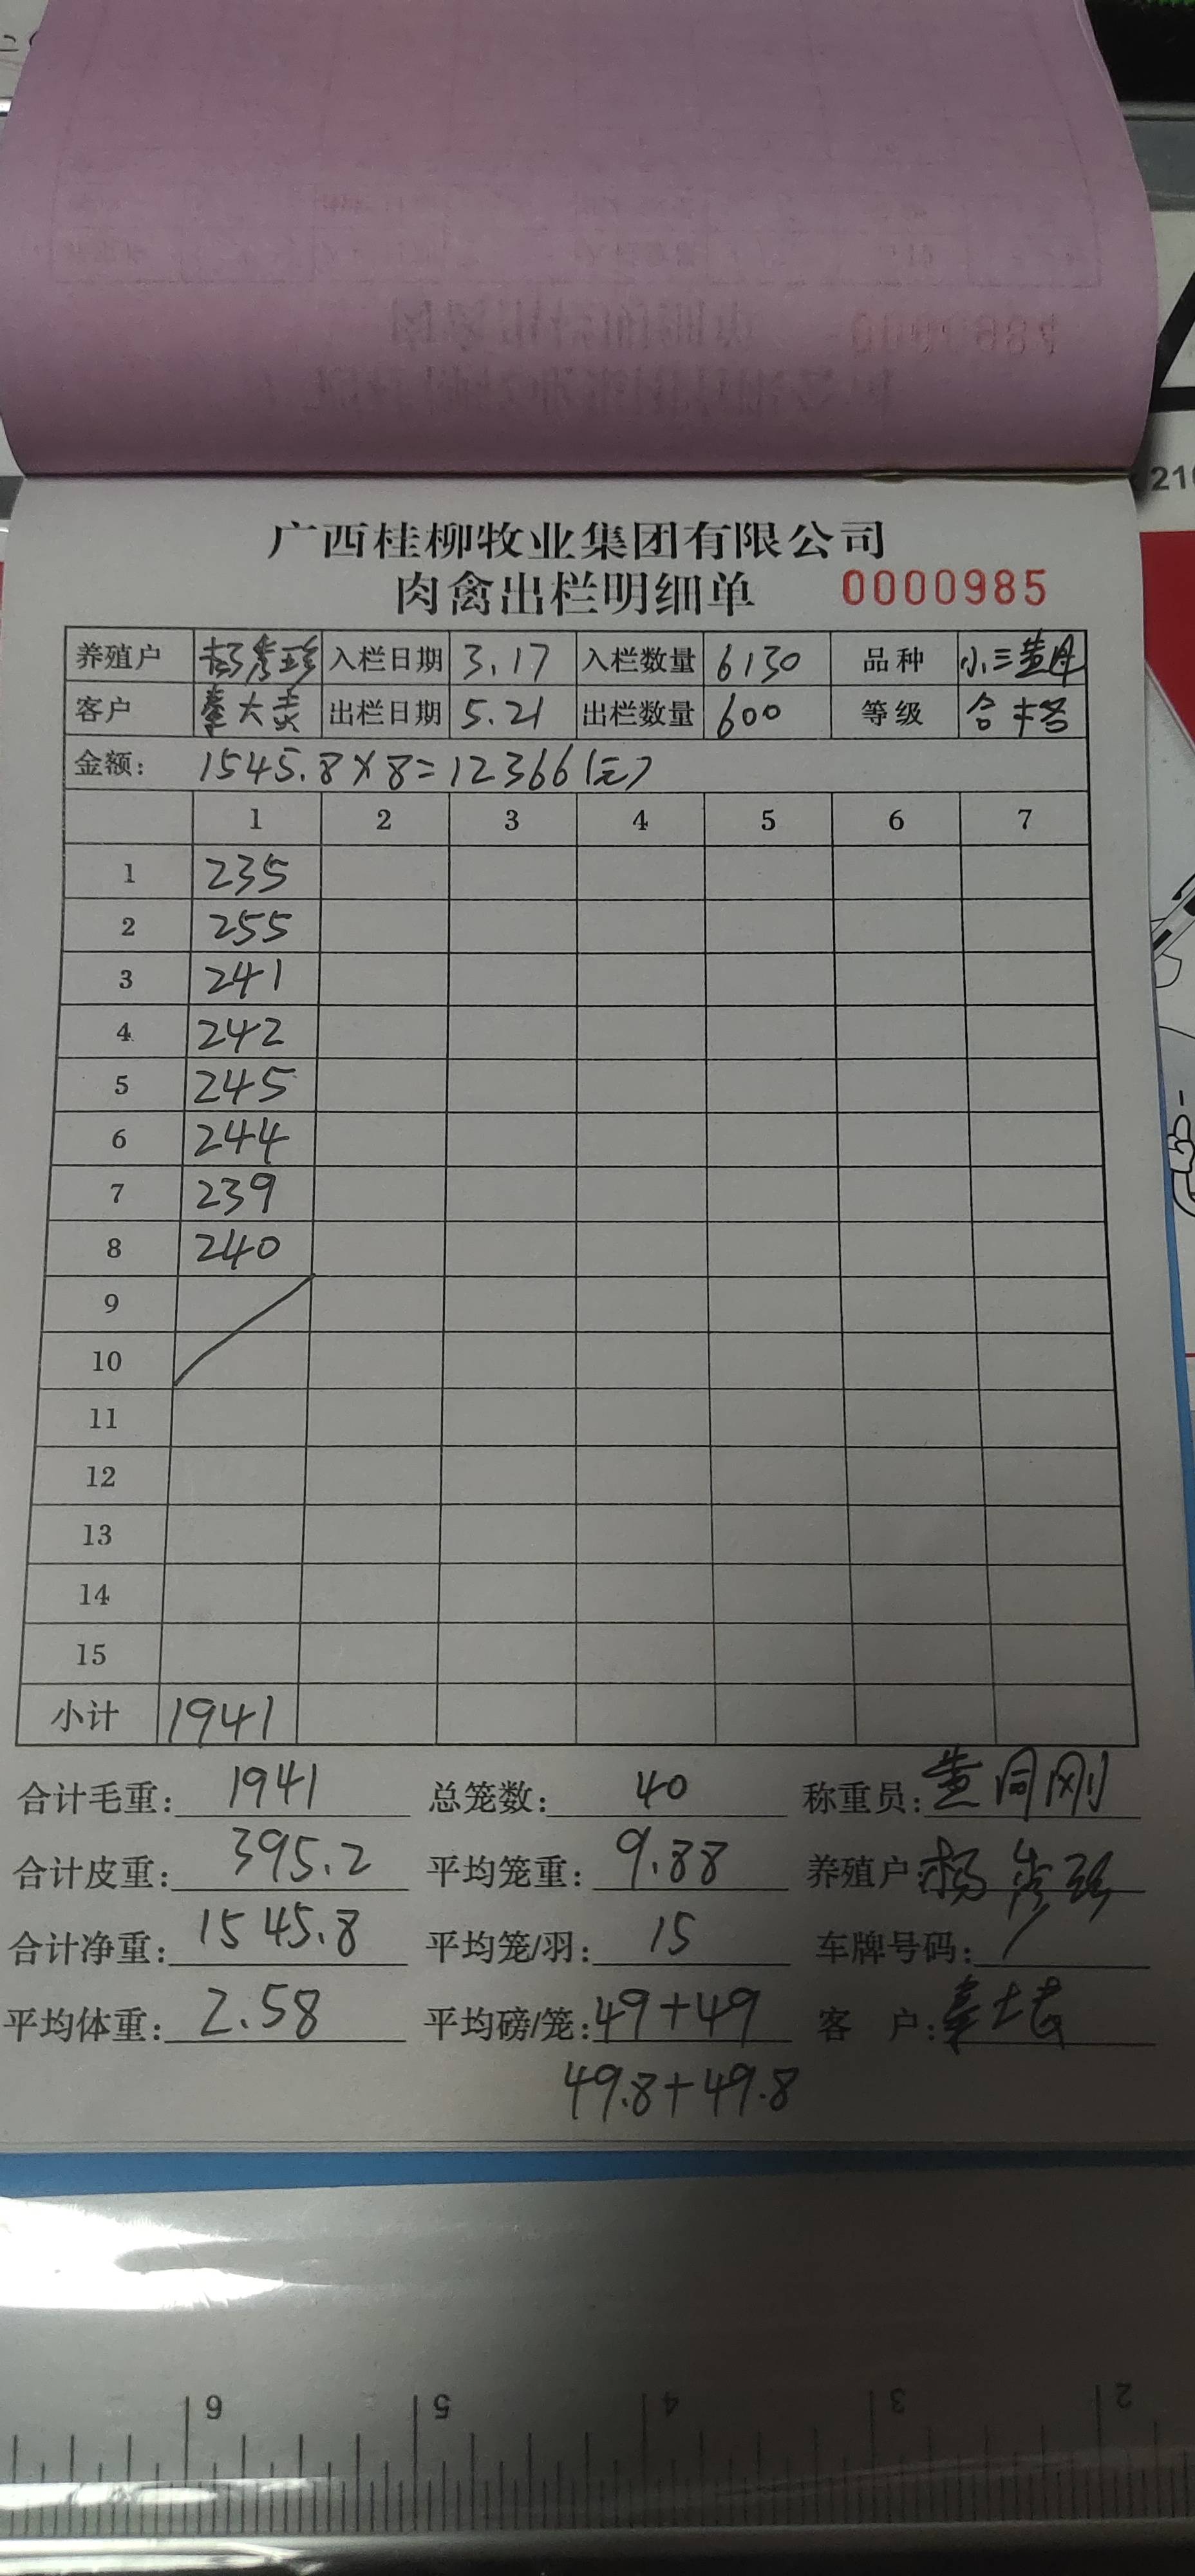 广西桂柳牧业集团有限公司
肉禽出栏明细单 0000985
养殖户 杨秀珍 入栏日期 3.17 入栏数量 6130 品种 小三黄母
客户 覃大 出栏日期 5.21 出栏数量 600 等级 合格
金额: 1545.8×8=12366(元)
1 2 3 4 5 6 7
1 235
2 255
3 241
4 242
5 245
6 244
7 239
8 240
9
10
11
12
13
14
15
小计 1941
合计毛重: 1941 总笼数: 40 称重员: 黄同刚
合计皮重: 395.2 平均笼重: 9.88 养殖户 杨秀珍
合计净重: 1545.8 平均笼/羽: 15 车牌号码: /
平均体重: 2.58 平均磅/笼: 49+49 客 户:
49.8+49.8
210
6 5 4 3 2